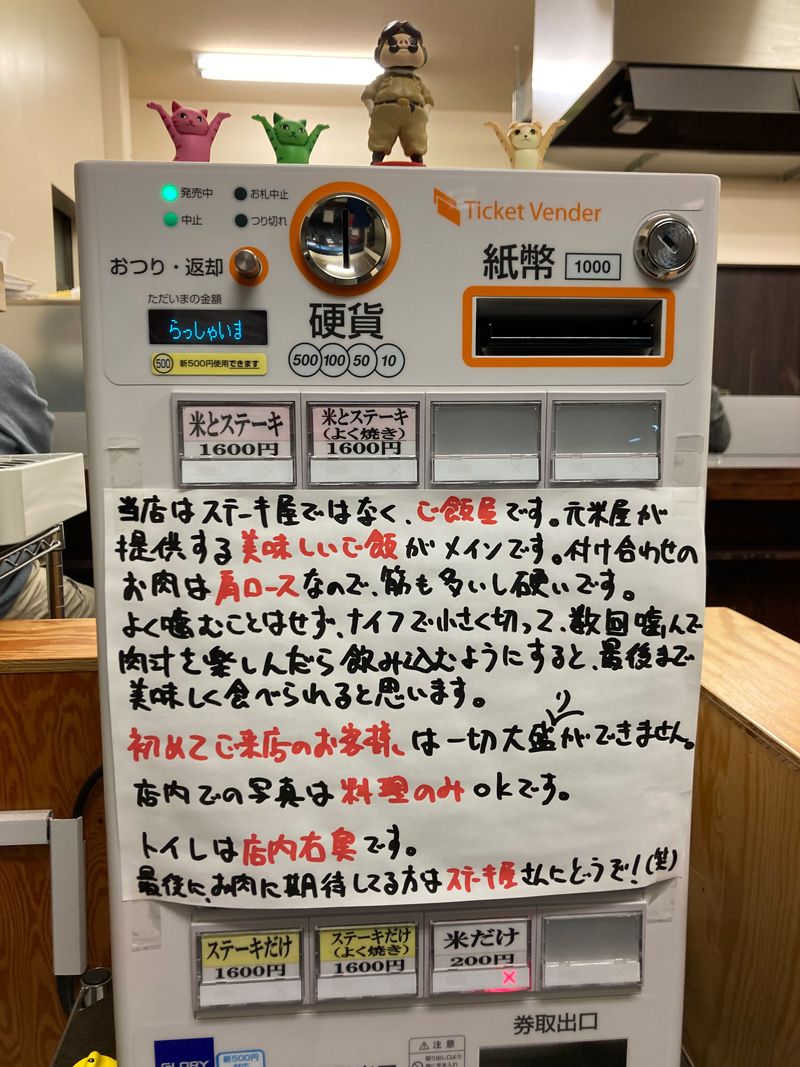 発売中
お札中止
中止
つり切れ
Ticket Vender
おつり・返却
紙幣 1000
ただいまの金額
らっしゃいま
硬貨
500 100 50 10
500 新500円使用できます
米とステーキ
1600円
米とステーキ
(よく焼き)
1600円
当店はステーキ屋ではなく、ご飯屋です。元米屋が
提供する美味しいご飯がメインです。付け合わせの
お肉は肩ロースなので、筋も多いし硬いです。
よく噛むことはせず、ナイフで小さく切って、数回噛んで
肉汁を楽しんだら飲み込むようにすると、最後まで
美味しく食べられると思います。
初めてご来店のお客様、は一切大盛りができません。
店内での写真は料理のみokです。
トイレは店内右奥です。
最後に、お肉に期待してる方はステーキ屋さんにどうぞ!(笑)
ステーキだけ
1600円
ステーキだけ
(よく焼き)
1600円
米だけ
200円
×
券取出口
GLORY
新500円
対応
⚠注意
取り出し口より